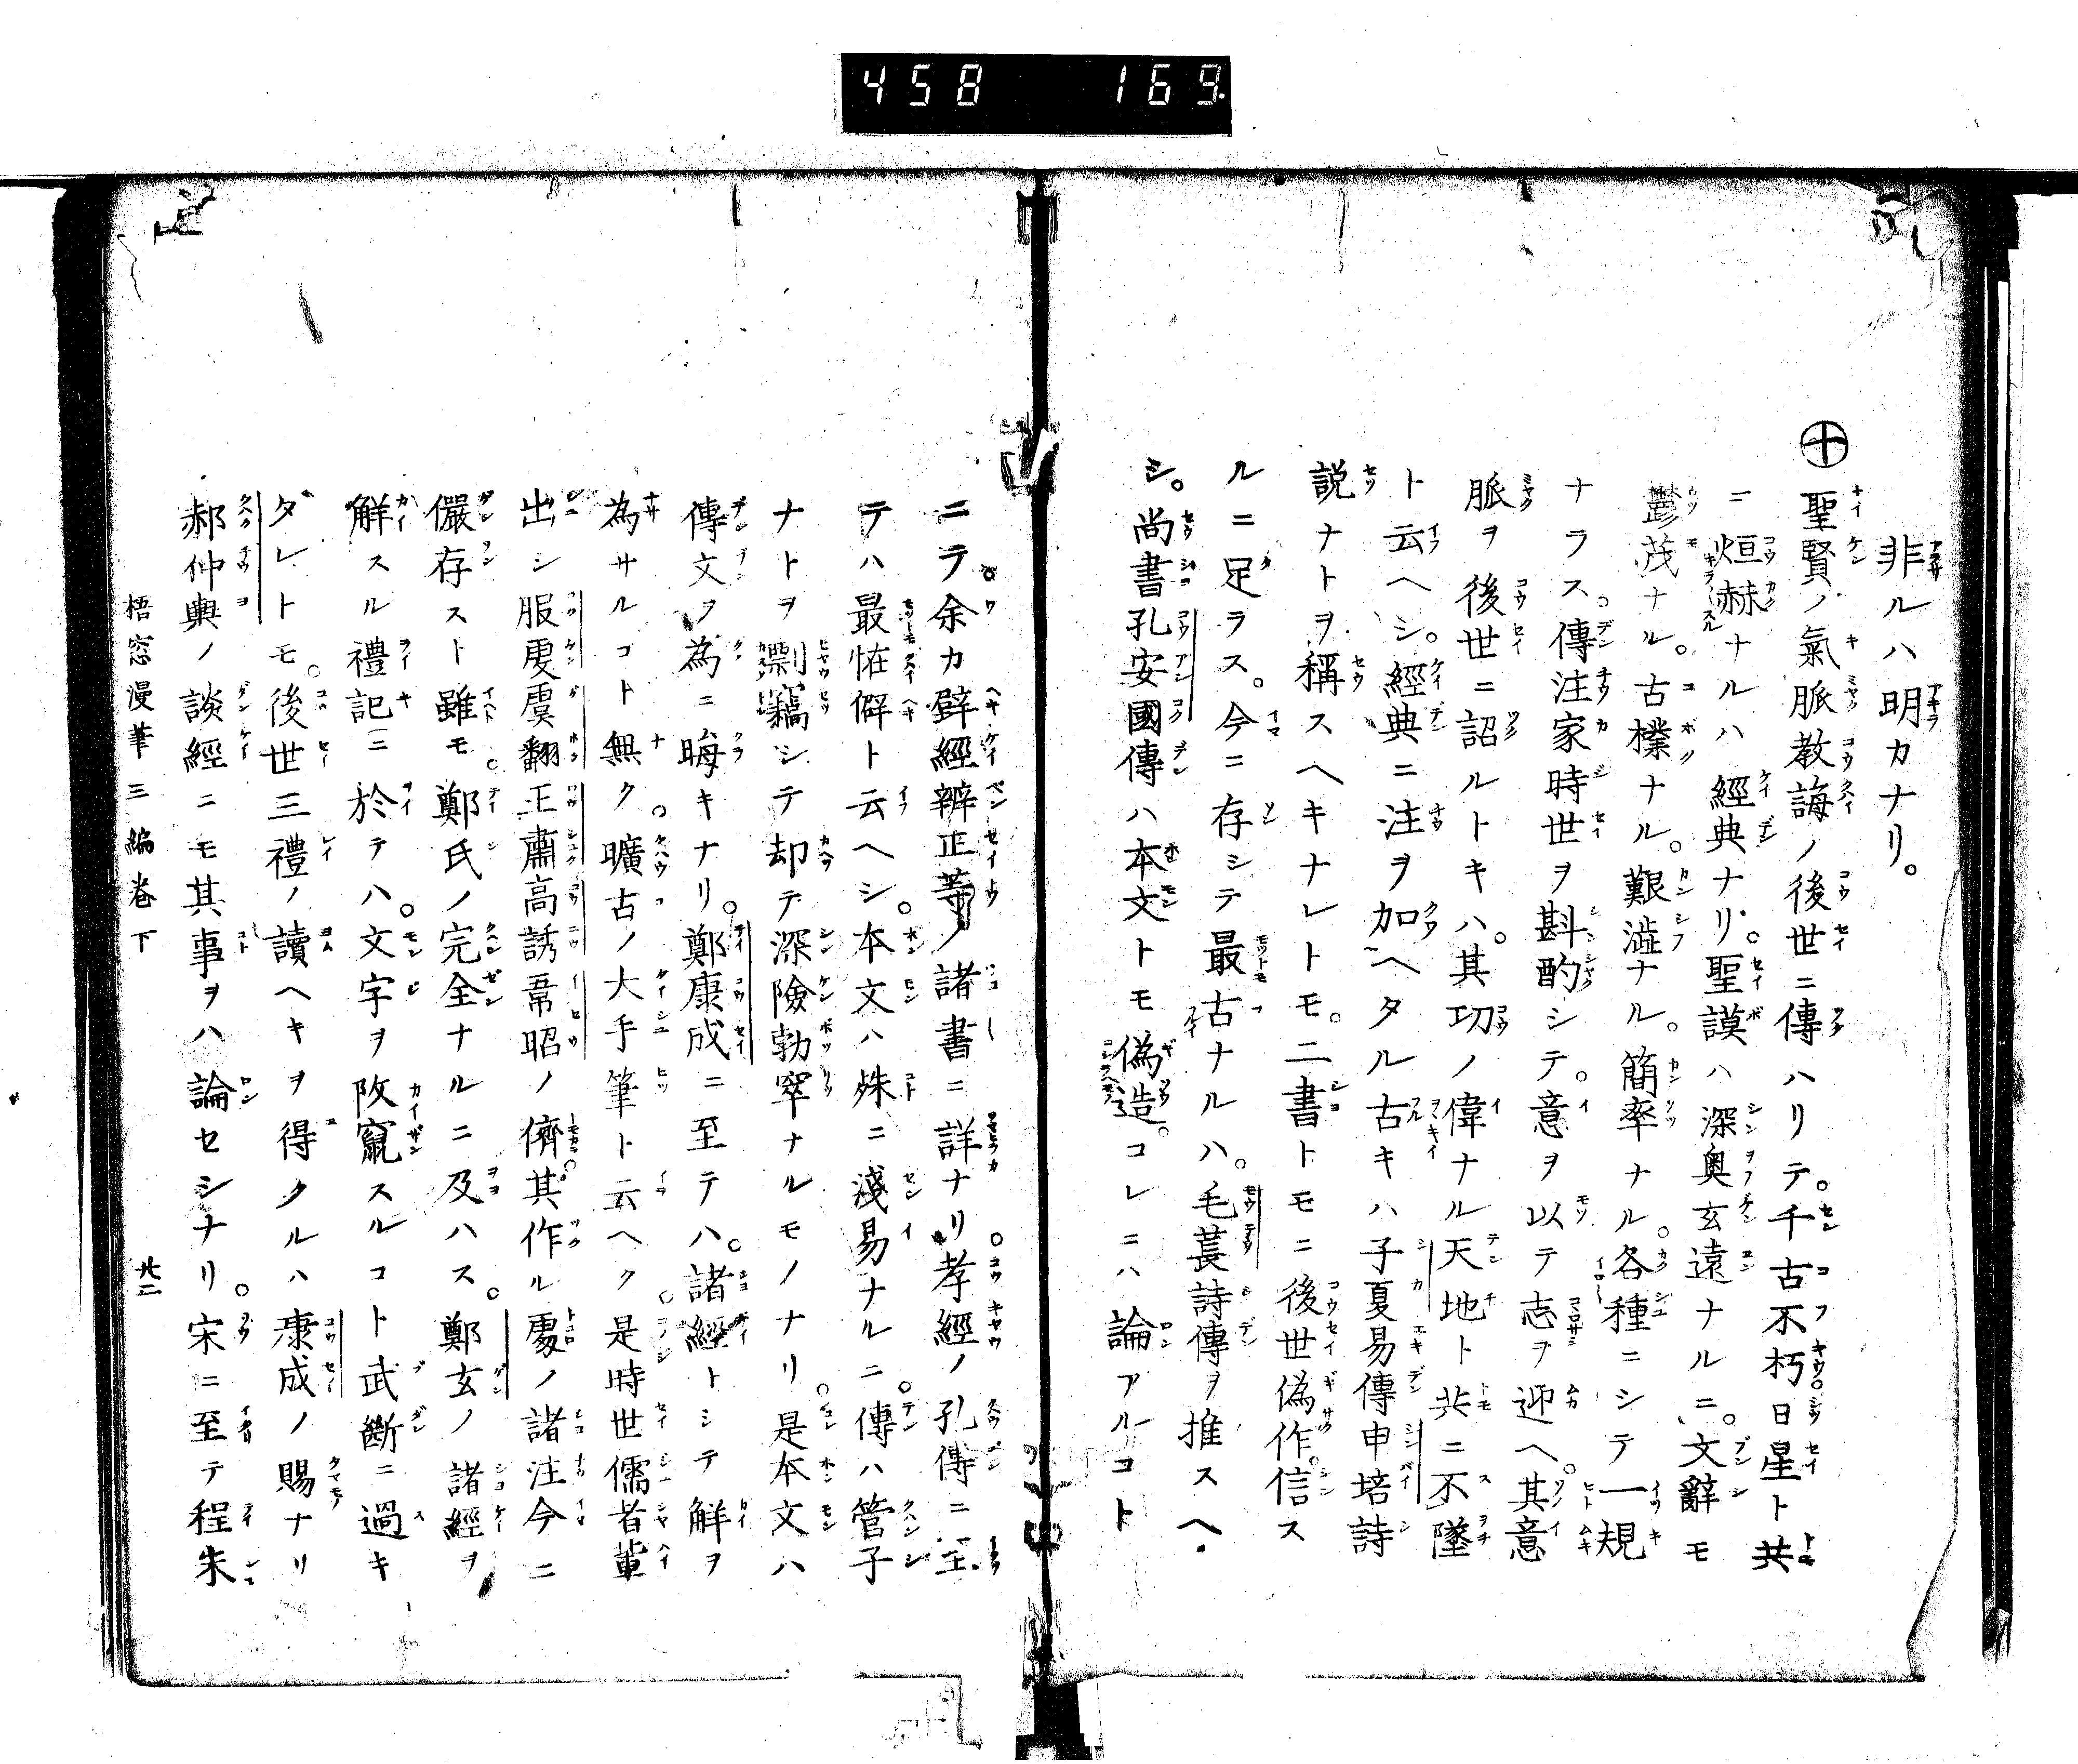 458 169.
非ルハ明カナリ。
㊉聖賢ノ氣脈教誨ノ後世ニ傳ハリテ。千古不朽。日星ト共
ニ烜赫ナルハ經典ナリ。聖謨ハ深奥玄遠ナルニ。文辭モ
鬱茂ナル。古樸ナル。艱澁ナル。簡率ナル。各種ニシテ一規
ナラス。傳注家時世ヲ斟酌シテ。意ヲ以テ志ヲ迎ヘ。其意
脈ヲ後世ニ詔ルトキハ。其功ノ偉ナル天地ト共ニ不墜
ト云ヘシ。經典ニ注ヲ加ヘタル古キハ子夏易傳申培詩
説ナトヲ稱スヘキナレトモ。二書トモニ後世偽作。信ス
ルニ足ラス。今ニ存シテ最古ナルハ。毛萇詩傳ヲ推スヘ
シ。尚書孔安國傳ハ本文トモ偽造。コレニハ論アルコト
ニテ。余カ壁經辨正等ノ諸書ニ詳ナリ。孝經ノ孔傳ニ至
テハ最恠僻ト云ヘシ。本文ハ殊ニ淺易ナルニ。傳ハ管子
ナトヲ剽竊シテ却テ深險勃窣ナルモノナリ。是本文ハ
傳文ヲ為ニ晦キナリ。鄭康成ニ至テハ。諸經トシテ解ヲ
為サルコト無ク。曠古ノ大手筆ト云ヘク。是時世儒者輩
出シ服虔虞翻王肅高誘韋昭ノ儕。其作ル處ノ諸注今ニ
儼存スト雖モ。鄭氏ノ完全ナルニ及ハス。鄭玄ノ諸經ヲ
解スル禮記ニ於テハ。文字ヲ改竄スルコト武斷ニ過キ
タレトモ。後世三禮ノ讀ヘキヲ得タルハ康成ノ賜ナリ
郝仲輿ノ談經ニモ其事ヲハ論セシナリ。宋ニ至テ程朱
梧窓漫筆三編卷下 廿二